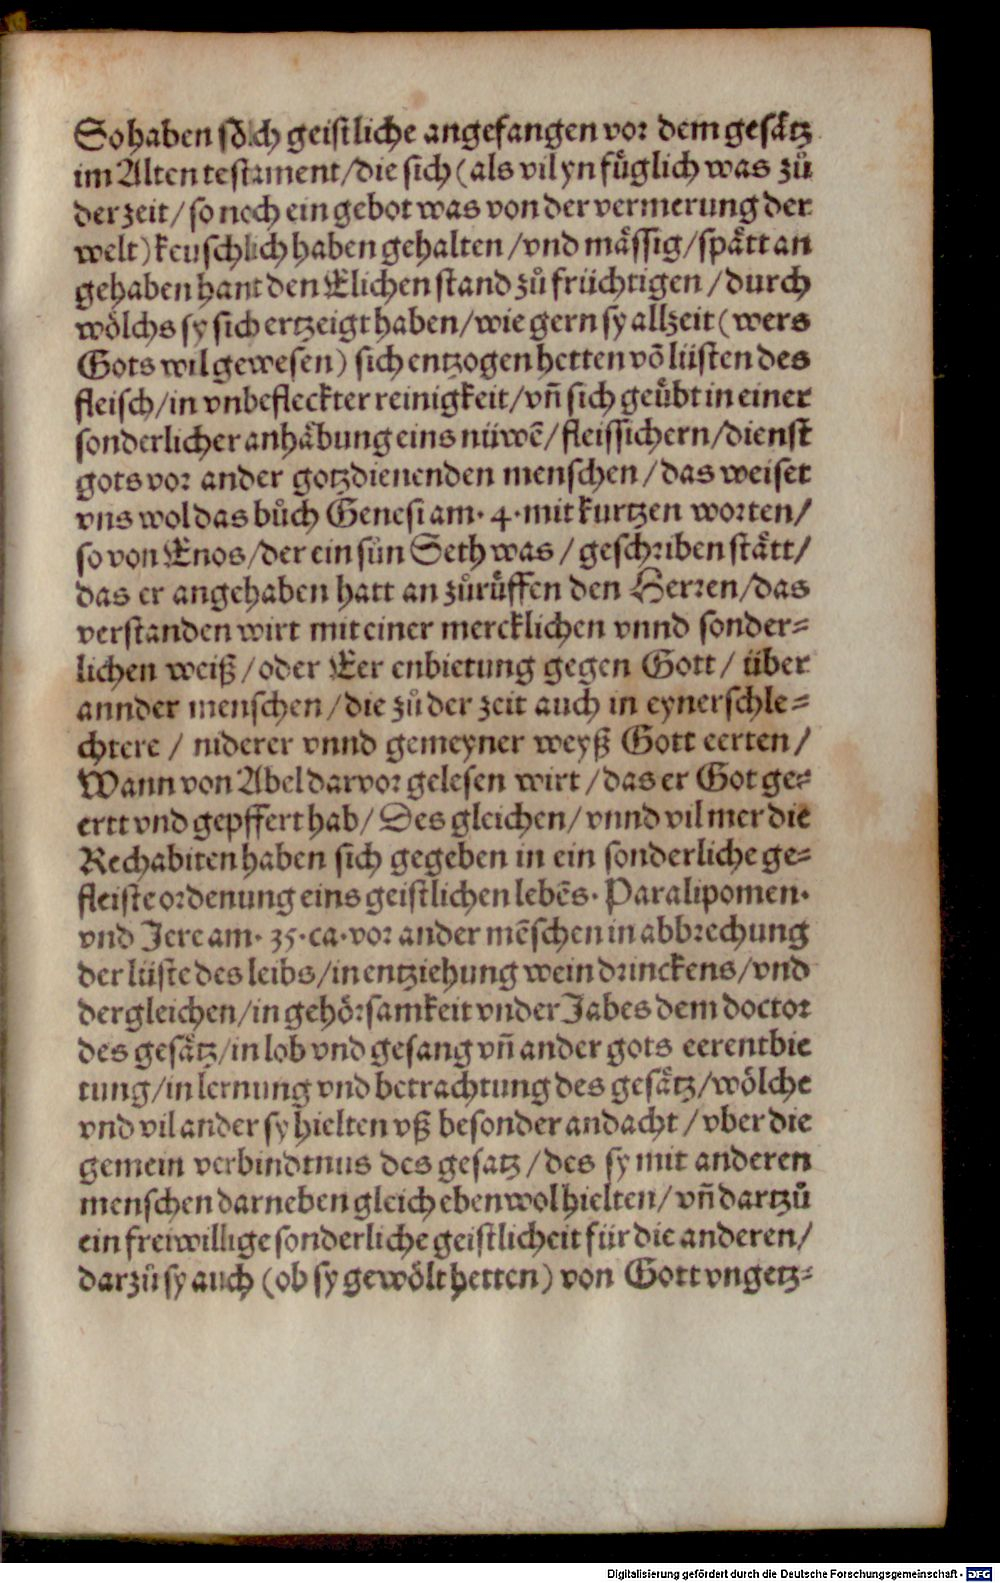 So haben sölch geistliche angefangen vor dem gesätz
im Alten testament/die sich (als vil yn füglich was zů
der zeit/ so noch ein gebot was von der vermerung der
welt) keuschlich haben gehalten /vnd mässig/spätt an
gehaben hant den Elichen stand zů früchtigen /durch
wölchs sy sich ertzeigt haben/wie gern sy allzeit (wers
Gots wil gewesen) sich entzogen hetten võ lüsten des
fleisch/in vnbefleckter reinigkeit/vñ sich geübt in einer
sonderlicher anhäbung eins nüwẽ/ fleissichern/dienst
gots vor ander gotzdienenden menschen /das weiset
vns wol das bůch Genesi am. 4. mit kurtzen worten/
so von Enos/der ein sün Seth was / geschriben stätt/
das er angehaben hatt an zůrüffen den Herren/das
verstanden wirt mit einer mercklichen vnnd sonder=
lichen weiß /oder Eer enbietung gegen Gott/ über
annder menschen /die zů der zeit auch in eyner schle=
chtere / niderer vnnd gemeyner weyß Gott eerten/
Wann von Abel darvor gelesen wirt /das er Got ge=
ertt vnd gepffert hab/ Des gleichen/ vnnd vil mer die
Rechabiten haben sich gegeben in ein sonderliche ge=
fleiste ordenung eins geistlichen lebẽs. Paralipomen.
vnd Jere am. 35. ca. vor ander mẽschen in abbrechung
der lüste des leibs/in entziehung wein drinckens/vnd
dergleichen/in gehörsamkeit vnder Jabes dem doctor
des gesätz/in lob vnd gesang vñ ander gots eerentbie
tung/in lernung vnd betrachtung des gesätz/wölche
vnd vil ander sy hielten vß besonder andacht /vber die
gemein verbindtnus des gesatz /des sy mit anderen
menschen darneben gleich ebenwol hielten/ vñ dartzů
ein freiwillige sonderliche geistlicheit für die anderen/
darzů sy auch (ob sy gewölt hetten) von Gott vngetz=
Digitalisierung gefördert durch die Deutsche Forschungsgemeinschaft - DFG